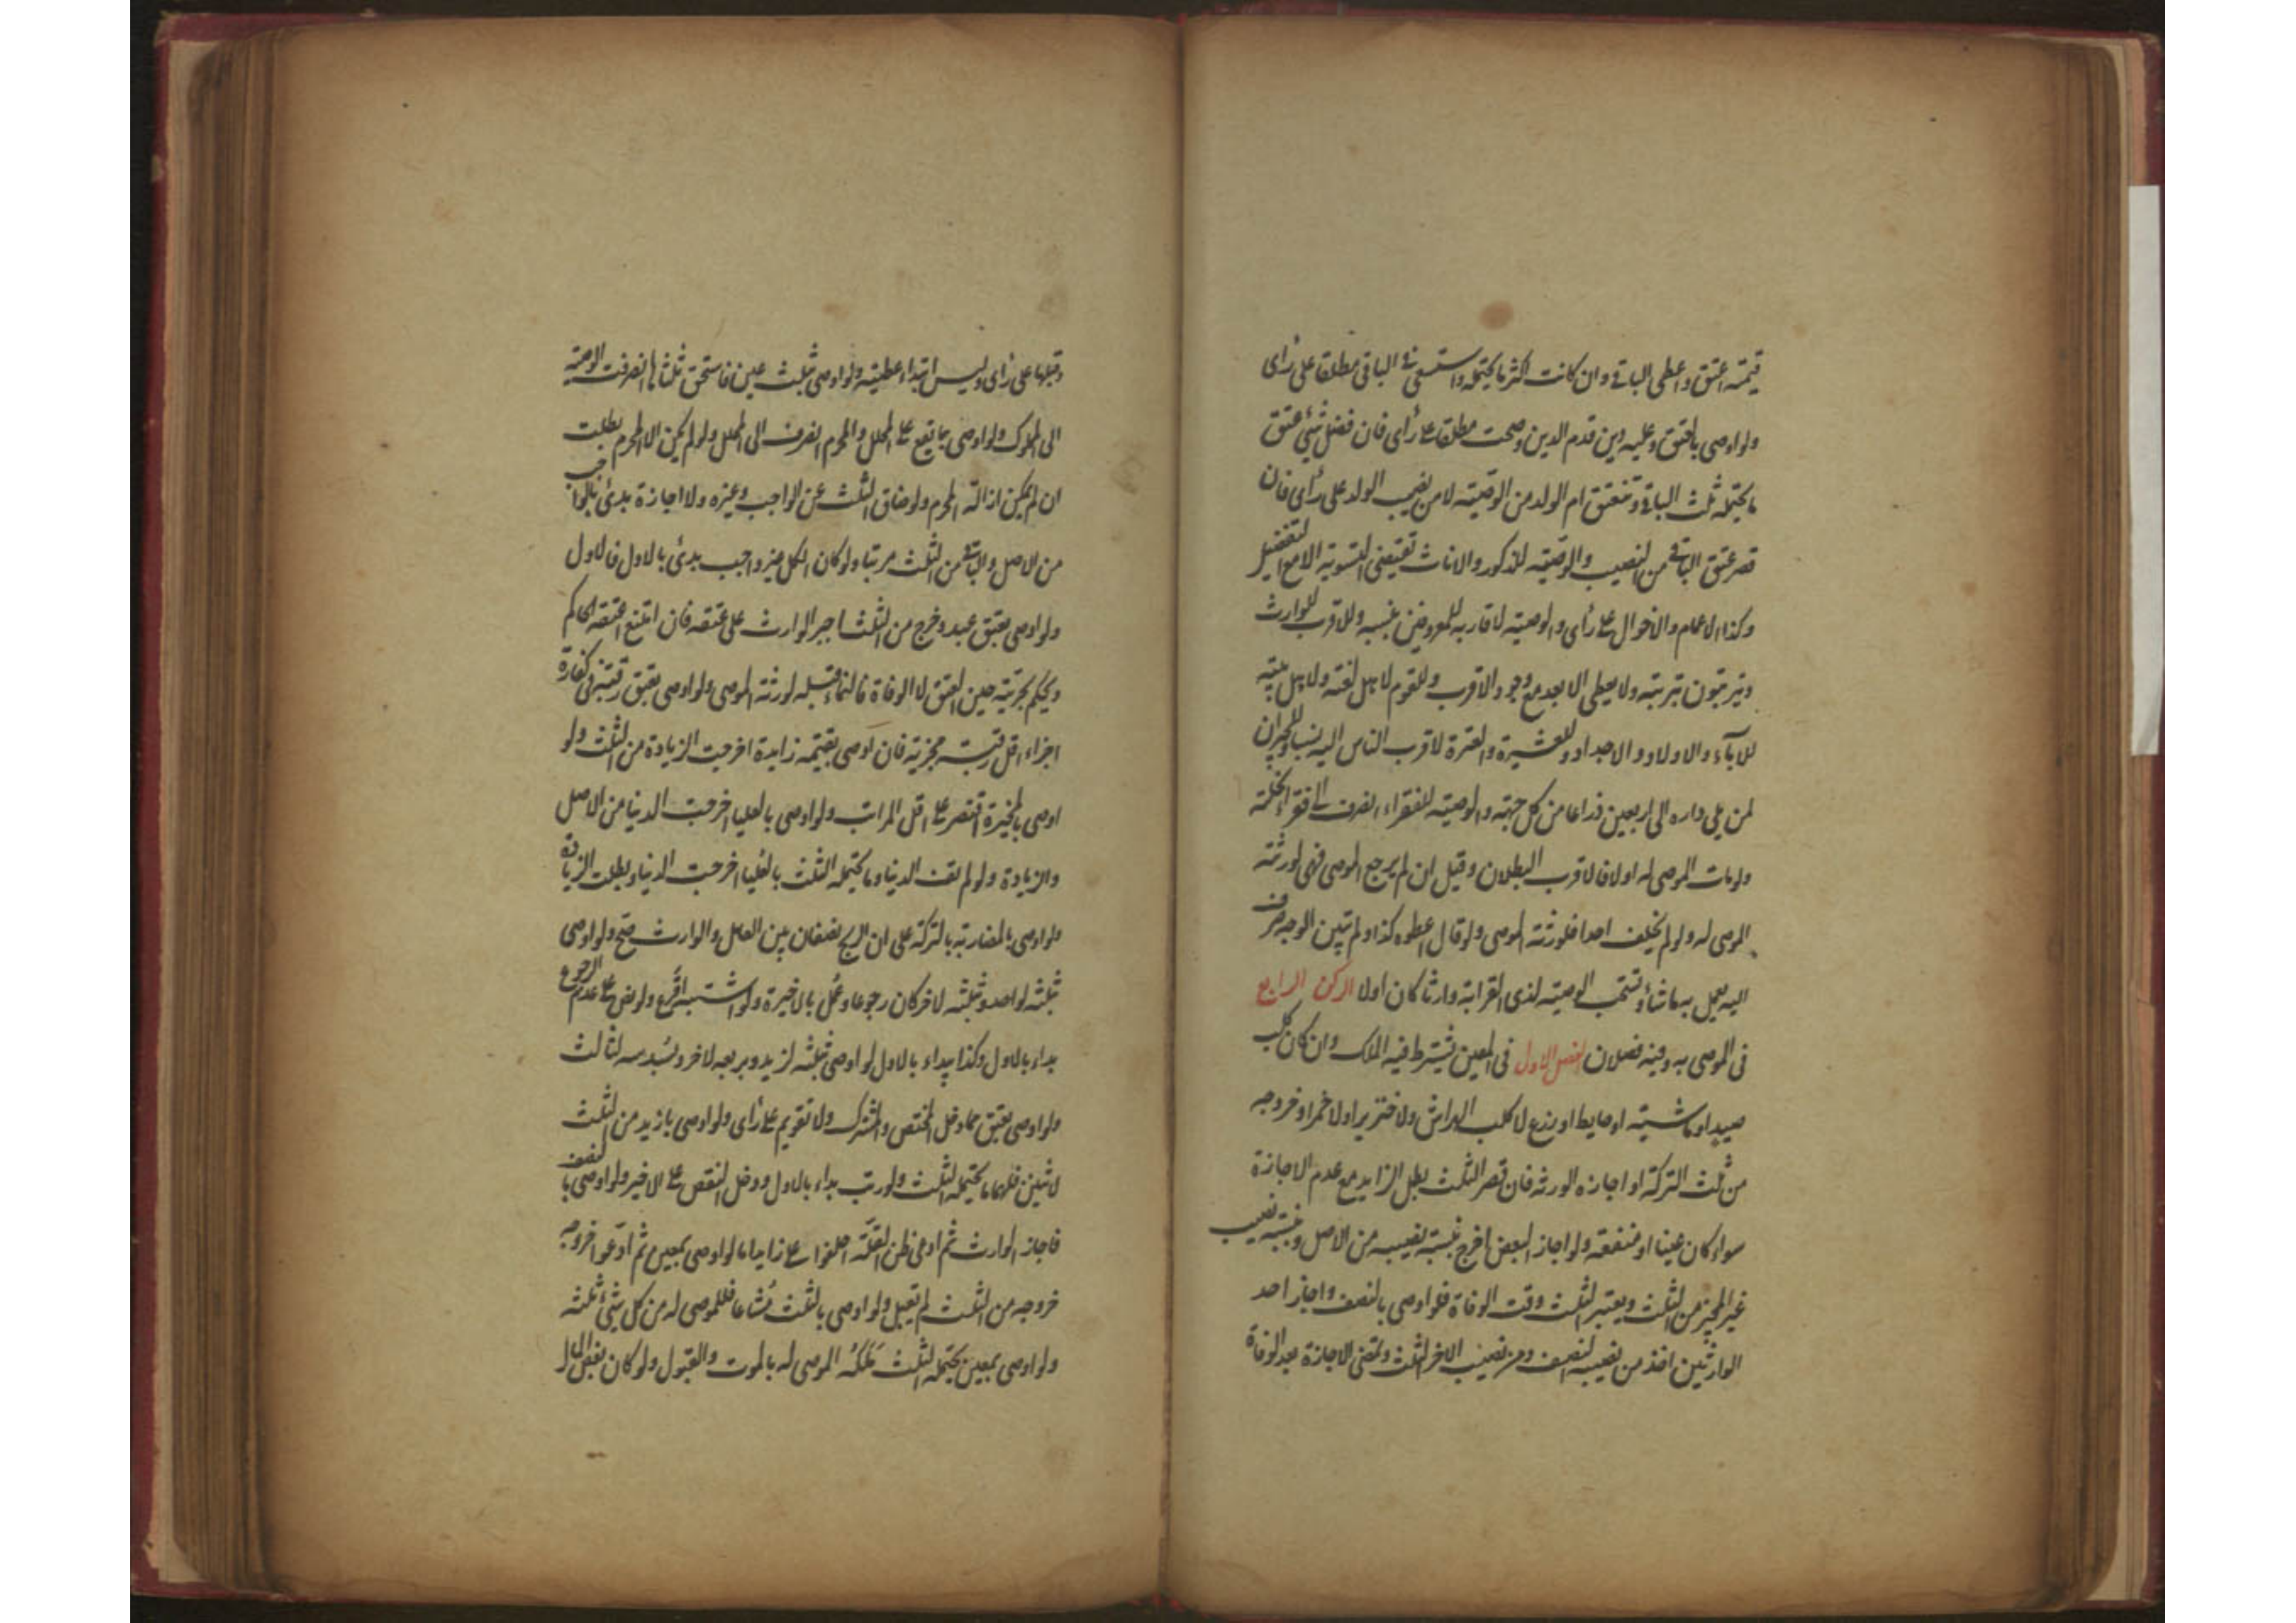 قيمته اعتق واعطى الباقي وان كانت اكثر مما يحتمله واستسعى في الباقي مطلقا على رأى
ولو اوصى بالعتق وعليه دين قدم الدين وصحت مطلقا على رأى فان فضل شئ عتق
ما يحتمله ثلث الباقي وتنعتق ام الولد من الوصيته لا من نصيب الولد على رأى فان
قصر عتق الباقي من النصيب والوصيته للذكور والاناث تقتضى التسوية الا مع التفضيل
وكذا الاعمام والاخوال على رأى والوصيته لاقاربه للمعروفين بنسبه وللاقرب للوارث
ويترتبون بترتبه ولا يعطى الابعد مع وجود الاقرب وللقوم لاهل لغته ولاهل بيته
للآباء والاولاد والاجداد وللعشيرة والعترة لاقرب الناس اليه نسبا وللجيران
لمن يلي داره الى اربعين ذراعا من كل جهته والوصيته للفقراء انصرف الى فقراء نحلته
ولو مات الموصى له اولا فالاقرب البطلان وقيل ان لم يرجع الموصى فهى لورثته
الموصى له ولو لم يخلف احدا فلورثته الموصى ولو قال اعطوه كذا ولم يبين الوجه صرف
اليه يعمل به ما شاء وتستحب الوصيته لذى القرابة وارثا كان اولا الركن الرابع
فى الموصى به وفيه فصلان الفصل الاول فى المعين يشترط فيه الملك وان كان كلب
صيد او ماشيته او حايط او زرع لا كلب الهراش ولا خنزير اولا خمرا وخروجه
من ثلث التركة او اجازه الورثه فان قصر الثلث بطل الزايد مع عدم الاجازة
سواء كان عينا او منفعته ولو اجاز البعض اخرج بنسبته نصيبه من الاصل وبنسبته نصيب
غير المجيز من الثلث ويعتبر الثلث وقت الوفاة فلو اوصى بالنصف واجاز احد
الوارثين اخذ من نصيبه النصف ومن نصيب الاخر الثلث وتمضى الاجازة بعد الوفاة
وقبلها على رأى وليس ابتداء عطيته ولو اوصى بثلث عين فاستحق ثلثاها انصرفت الوصية
الى المملوك ولو اوصى بما يقع على المحلل والمحرم انصرف الى المحلل ولو لم يكن الا المحرم بطلت
ان لم يكن ازالته المحرم ولو ضاق الثلث عن الواجب وغيره ولا اجازة بدئ بالواجب
من الاصل والباقي من الثلث مرتبا ولو كان الكل غير واجب بدئ بالاول فالاول
ولو اوصى بعتق عبد وخرج من الثلث اجبر الوارث على عتقه فان امتنع اعتقه الحاكم
ويحكم بحريته حين العتق لا الوفاة فالنماء قبله لورثته الموصى ولو اوصى بعتق رقبته فى كفارة
اجزاء اقل رقبته مجزيته فان اوصى بقيمته زايدة اخرجت الزيادة من الثلث ولو
اوصى بالمخيرة اقتصر على اقل المراتب ولو اوصى بالعليا اخرجت الدنيا من الاصل
والزيادة ولو لم تف الدنيا وما يحتمله الثلث بالعليا اخرجت الدنيا وبطلت الزيادة
ولو اوصى بالمضاربة بالتركة على ان الربح نصفان بين العامل والوارث صح ولو اوصى
بثلثه لواحد وبثلثه لاخر كان رجوعا وعمل بالاخيرة ولو اشتبه اقرع ولو نص على عدم الرجوع
بداء بالاول وكذا يبداء بالاول لو اوصى بثلثه لزيد وبربعه لاخر وبسدسه لثالث
ولو اوصى بعتق مماد دخل المختص والمشترك ولا تقويم على رأى ولو اوصى بازيد من الثلث
لاثنين فلهما ما يحتمله الثلث ولو رتب بداء بالاول ودخل النقص على الاخير ولو اوصى بالنصف
فاجاز الوارث ثم ادعى ظن القلّة احلفوا على الزايد اما لو اوصى بمعين ثم ادعوا خروجه
خروجه من الثلث لم تقبل ولو اوصى بالثلث مشاعا فللموصى له من كل شئ ثلثه
ولو اوصى بمعين يحتمله الثلث تملكه الموصى له بالموت والقبول ولو كان بعض المال